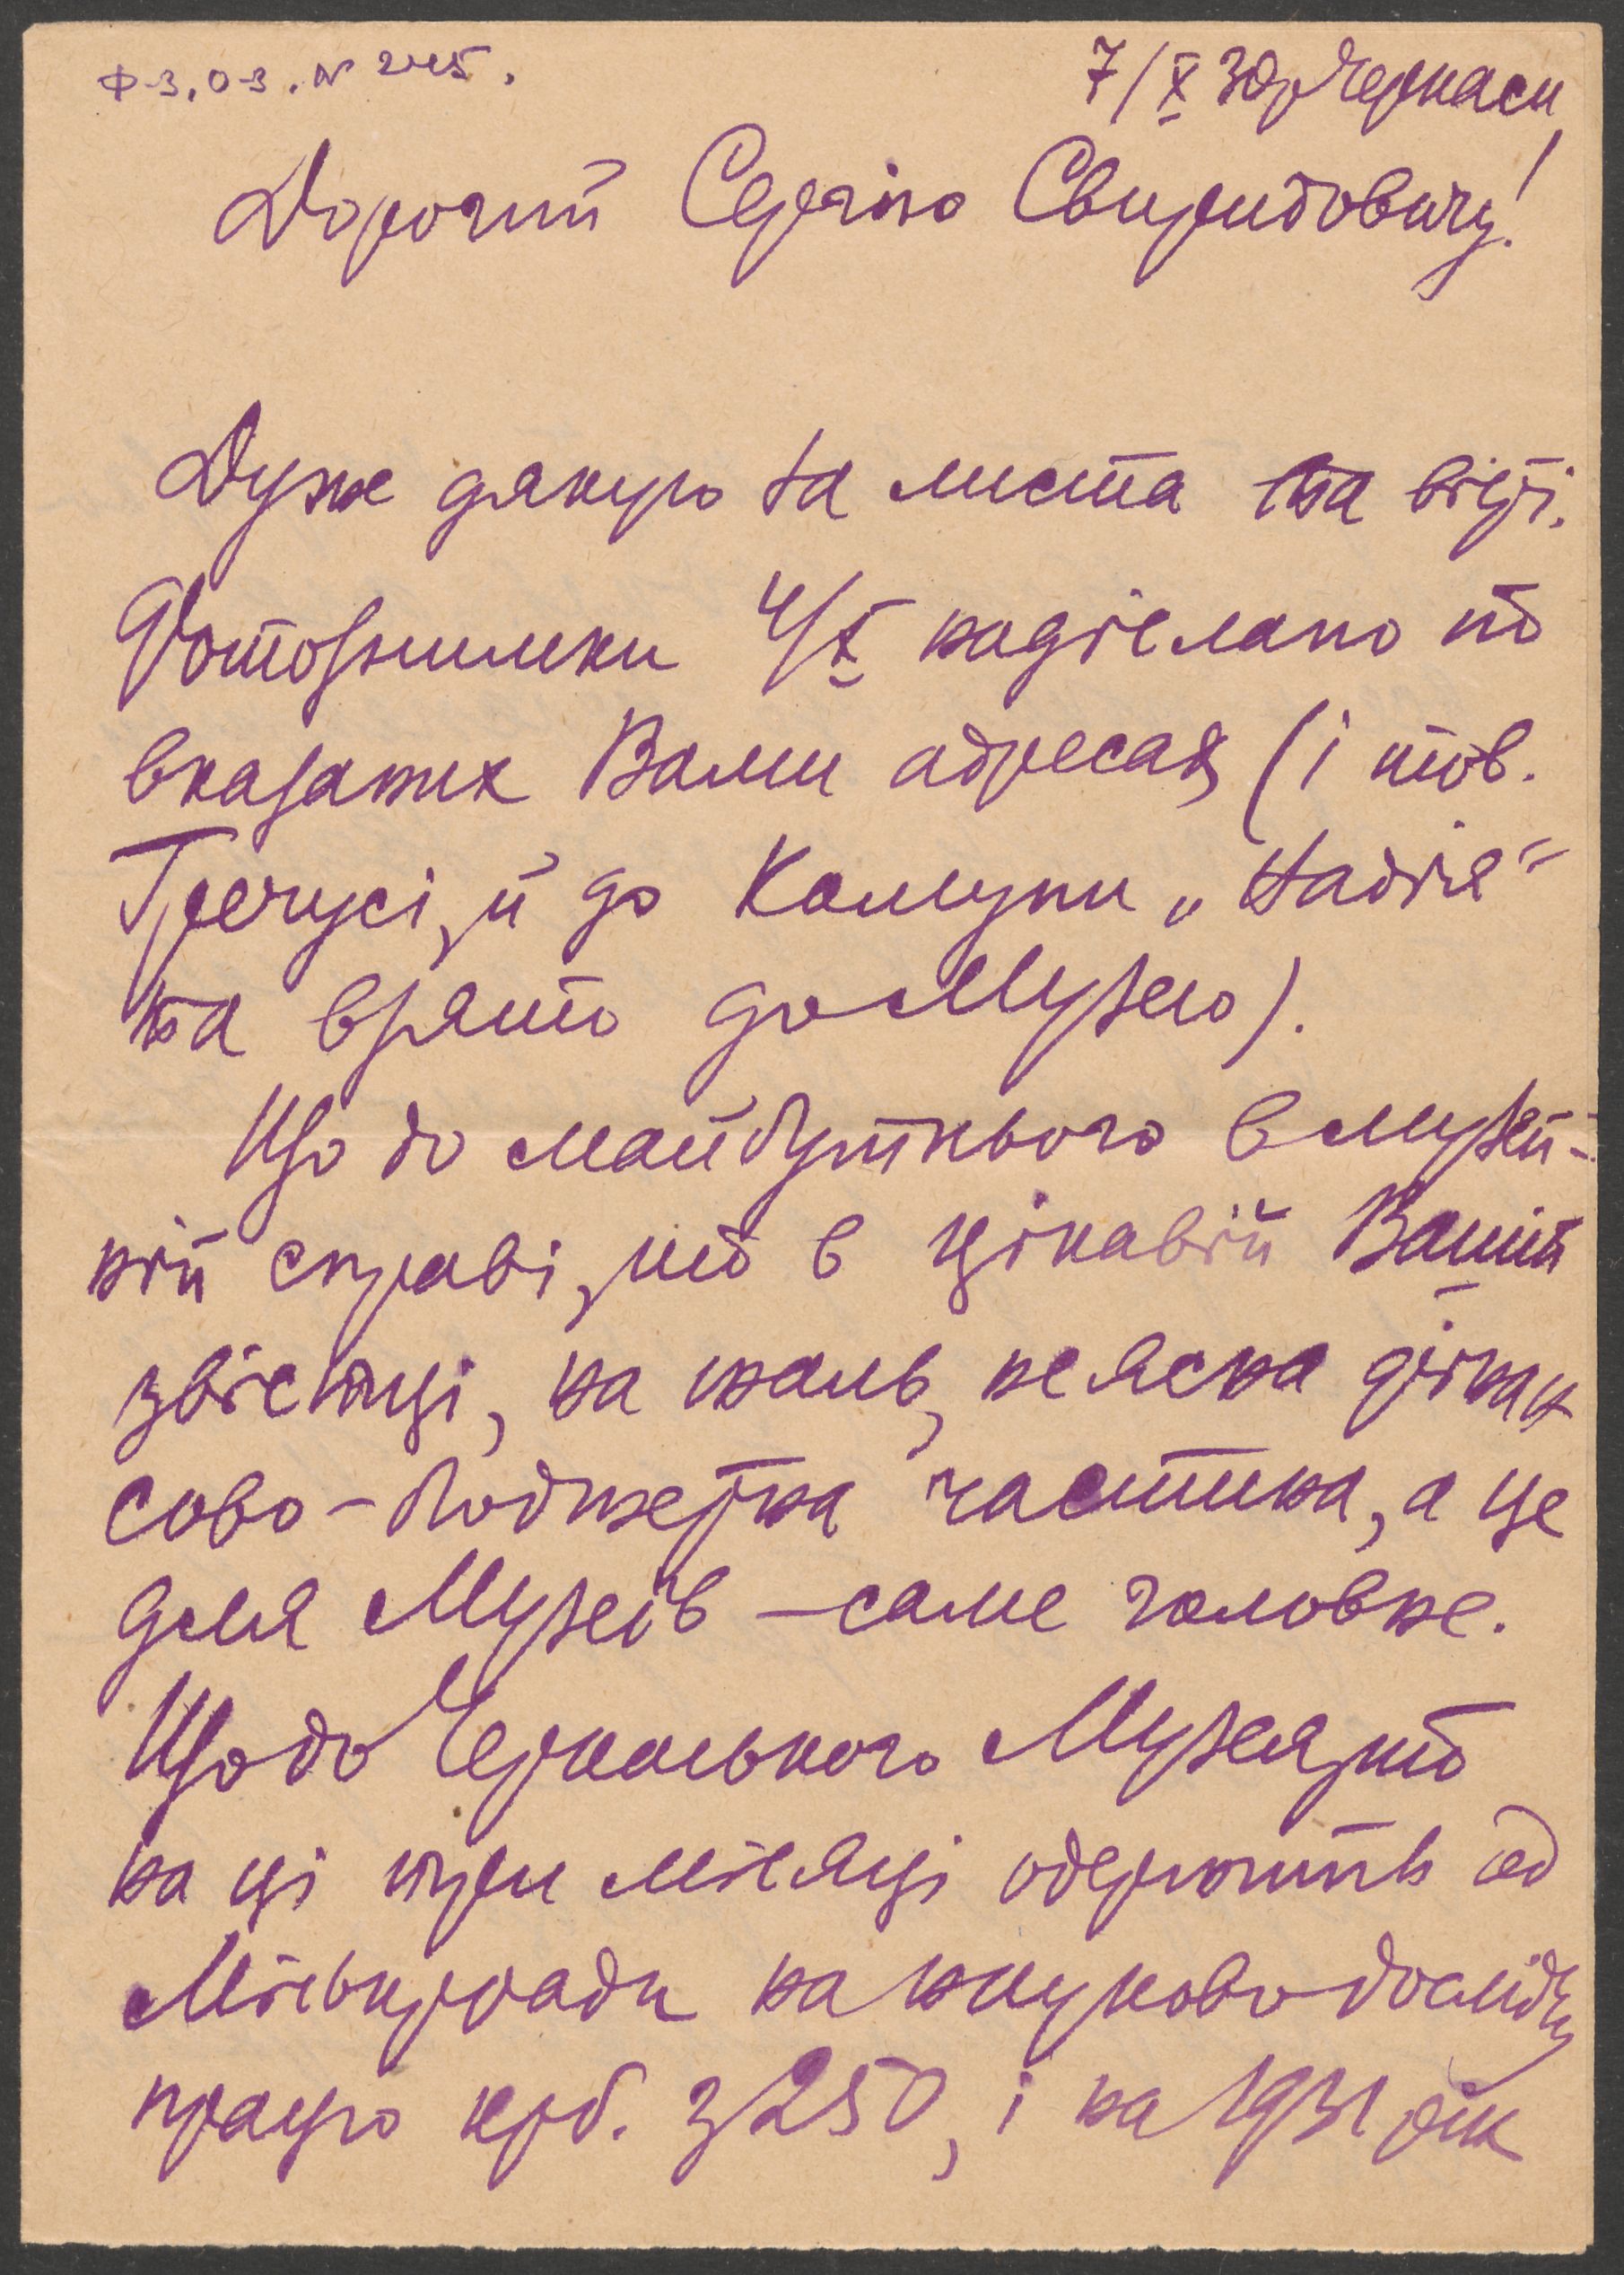 Ф-3, О-3. № 2445.
7/X 30 р Черкаси
Дорогий Сергію Свиридовичу!
Дуже дякую за листа та вірші.
Фотознимки 4/X надіслано по
вказаних Вами адресах (і тов.
Гречусі, й до Комуни „Надія“
та взято до Музею).
Що до майбутнього в музей-
ній справі, то в цікавій Вашій
звістці, на жаль, не ясна фінан
сово-бюджетна частина, а це
для Музеїв — саме головне.
Що до Черкаського Музея, то
на ці три місяці одержить од
Міськради на науково дослідчу
працю крб. з 250, і на 1931 рік